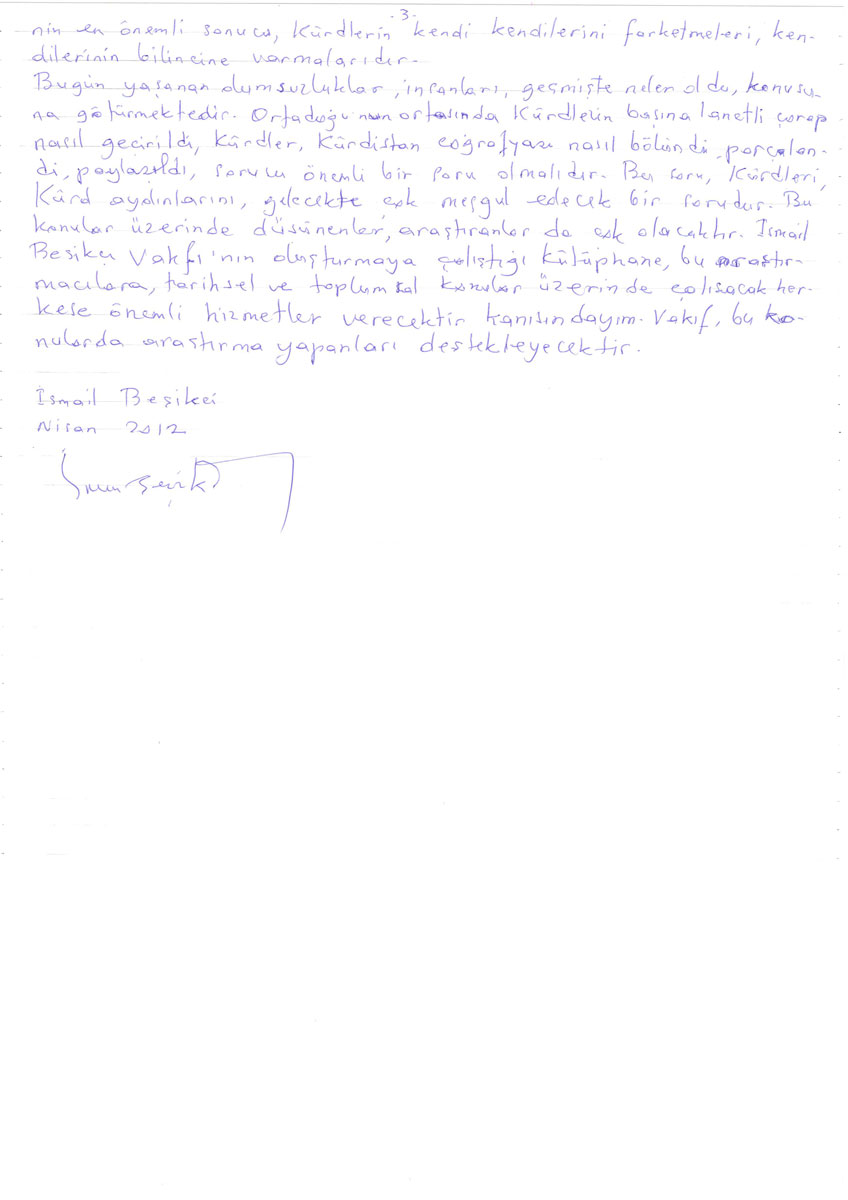 -3-
nin en önemli sonucu, Kürdlerin kendi kendilerini farketmeleri, ken-
dilerinin bilincine varmalarıdır.
Bugün yaşanan olumsuzluklar, insanları, geçmişte neler oldu, konusu-
na götürmektedir. Ortadoğu'nun ortasında Kürdlerin başına lanetli çorap
nasıl geçirildi, Kürdler, Kürdistan coğrafyası nasıl bölündü, parçalan-
dı, paylaşıldı, sorusu önemli bir soru olmalıdır. Bu soru, Kürdleri,
Kürd aydınlarını, gelecekte çok meşgul edecek bir sorudur. Bu
konular üzerinde düşünenler, araştıranlar da çok olacaktır. İsmail
Beşikci Vakfı'nın oluşturmaya çalıştığı kütüphane, bu araştır-
macılara, tarihsel ve toplumsal konular üzerinde çalışacak her-
kese önemli hizmetler verecektir kanısındayım. Vakıf, bu ko-
nularda araştırma yapanları destekleyecektir.
İsmail Beşikci
Nisan 2012